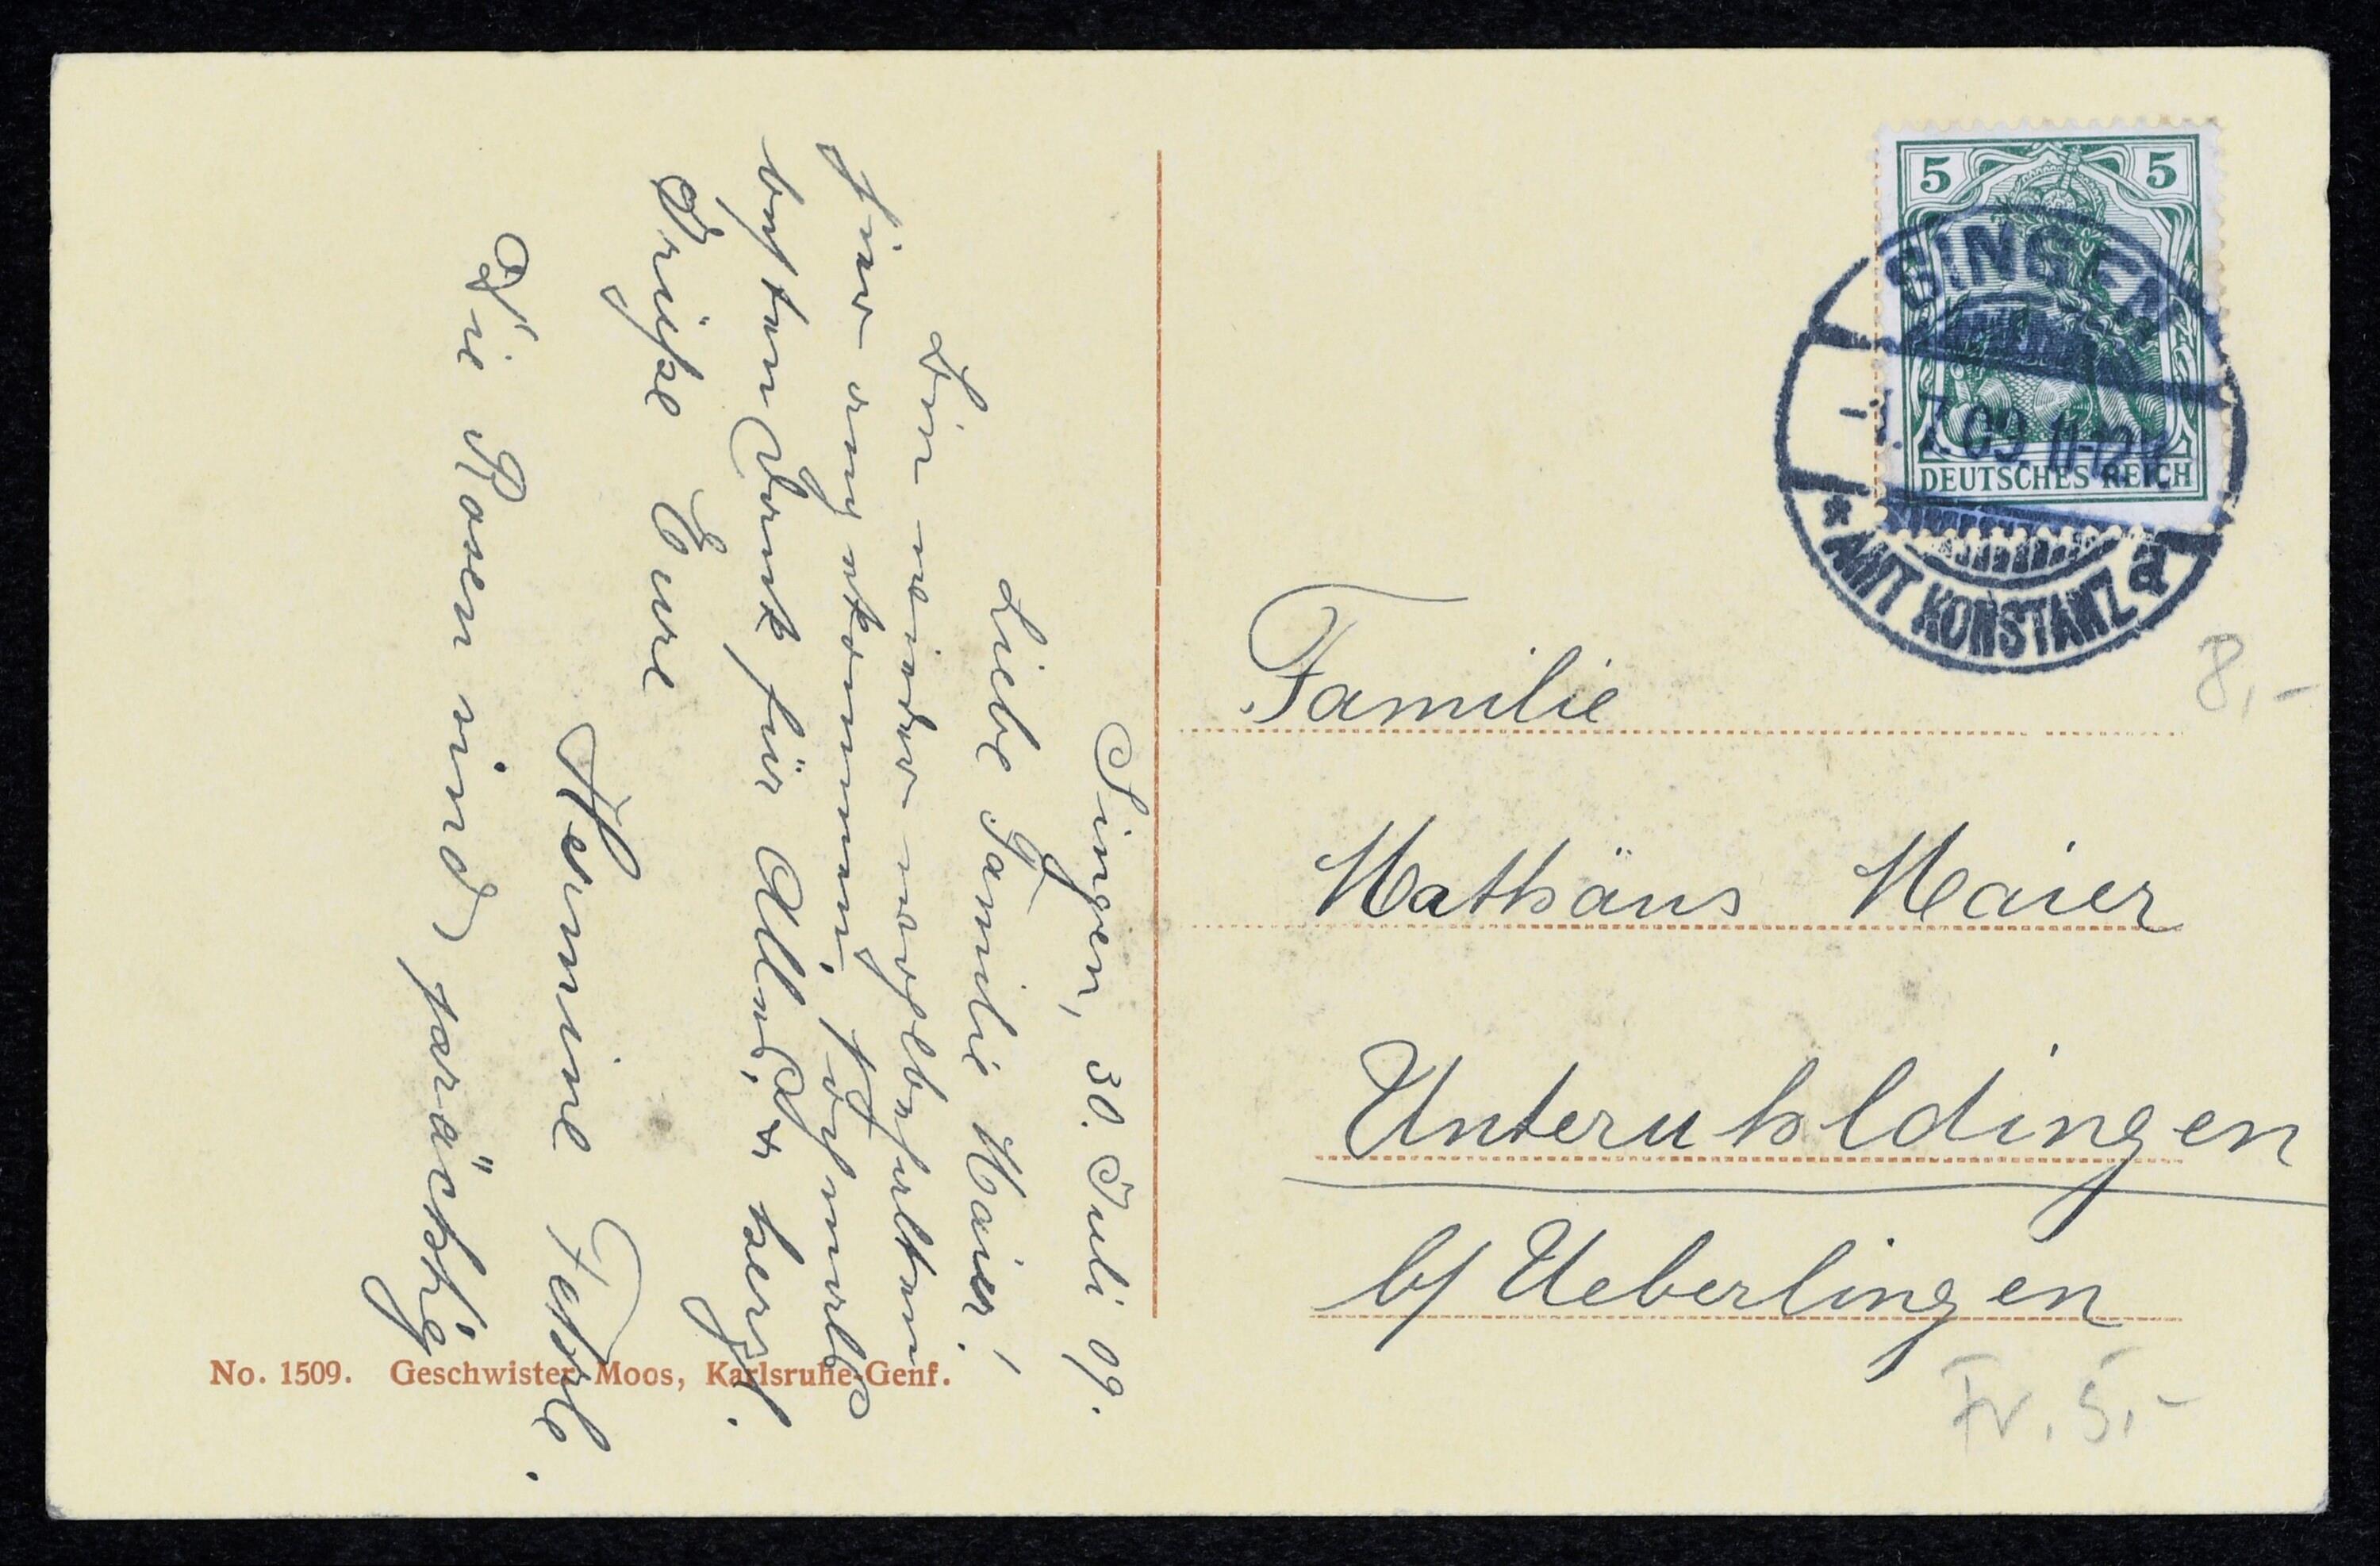 Singen, 30. Juli 09.
Liebe Familie Maier!
Bin wieder wohlbehalten
hier angekommen, sage nochmals
besten Dank für Alles & herzl.
Grüße Eure
Hermine
Die Rosen sind prächtig
No. 1509. Geschwister Moos, Karlsruhe-Genf.
5 5
DEUTSCHES REICH
SINGEN
7.09.11-12V
* AMT KONSTANZ a
8,-
Familie
Mathäus Maier
Unteruhldingen
b/ Ueberlingen
Fr. 5,-